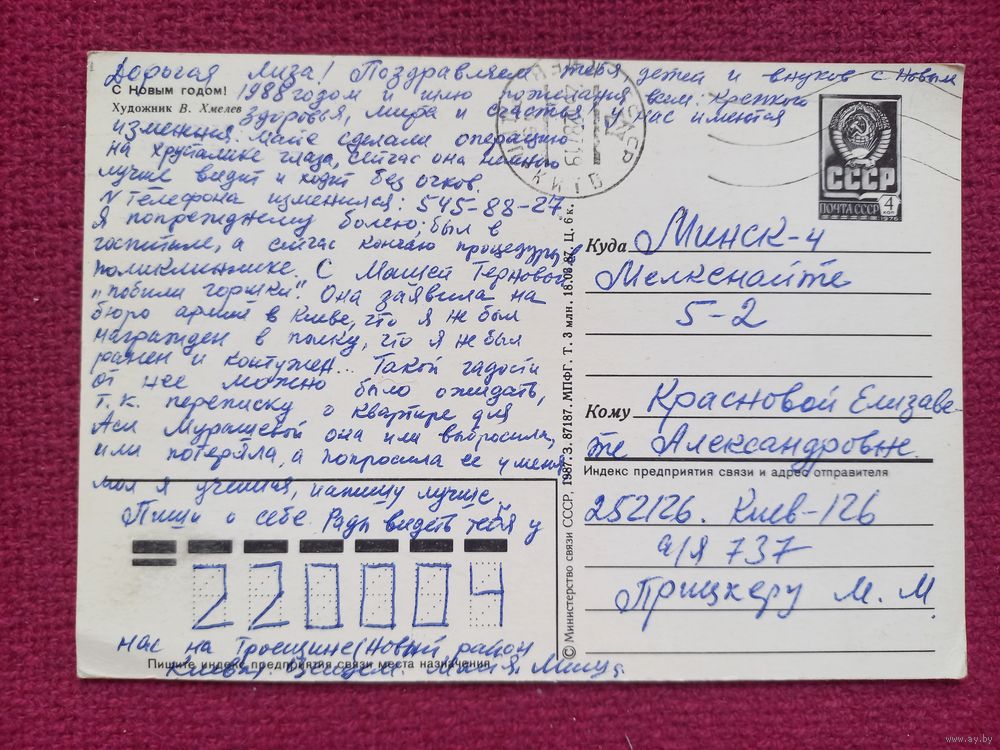 Дорогая Лиза! Поздравляем тебя детей и внуков с Новым
С Новым годом! 1988 годом и шлю пожелания всем: крепкого
Художник В. Хмелев здоровья, мира и счастья. У нас имеются
изменения: Майе сделали операцию
на хрусталике глаза, сейчас она немного
лучше видит и ходит без очков.
N телефона изменился: 545-88-27.
Я попрежднему болею: был в
госпитале, а сейчас кончаю процедуры в
поликлинике. С Машей Терновой
"побили горшки". Она заявила на
бюро армии в Киеве, что я не был
награжден в полку, что я не был
ранен и контужен... Такой гадости
от нее можно было ожидать,
т.к. переписку о квартире для
Аси Мурашевой она или выбросила,
или потеряла, а попросила ее у меня
мол я ученый, напишу лучше.
Пиши о себе. Рады видеть тебя у
220004
нас на Троещине (новый район
Пишите индекс предприятия связи места назначения
Киева). Целуем. Майя, Миша.
© Министерство связи СССР, 1987. З. 87187. МПФГ. Т. 3 млн. 18.08.87. Ц. 6 к.
СССР
ПОЧТА СССР 4 коп
1976
Куда Минск-4
Мелкенайте
5-2
Кому Красновой Елизаве-
те Александровне
Индекс предприятия связи и адрес отправителя
252126. Киев-126
а/я 737
Прицкеру М. М
www.ay.by